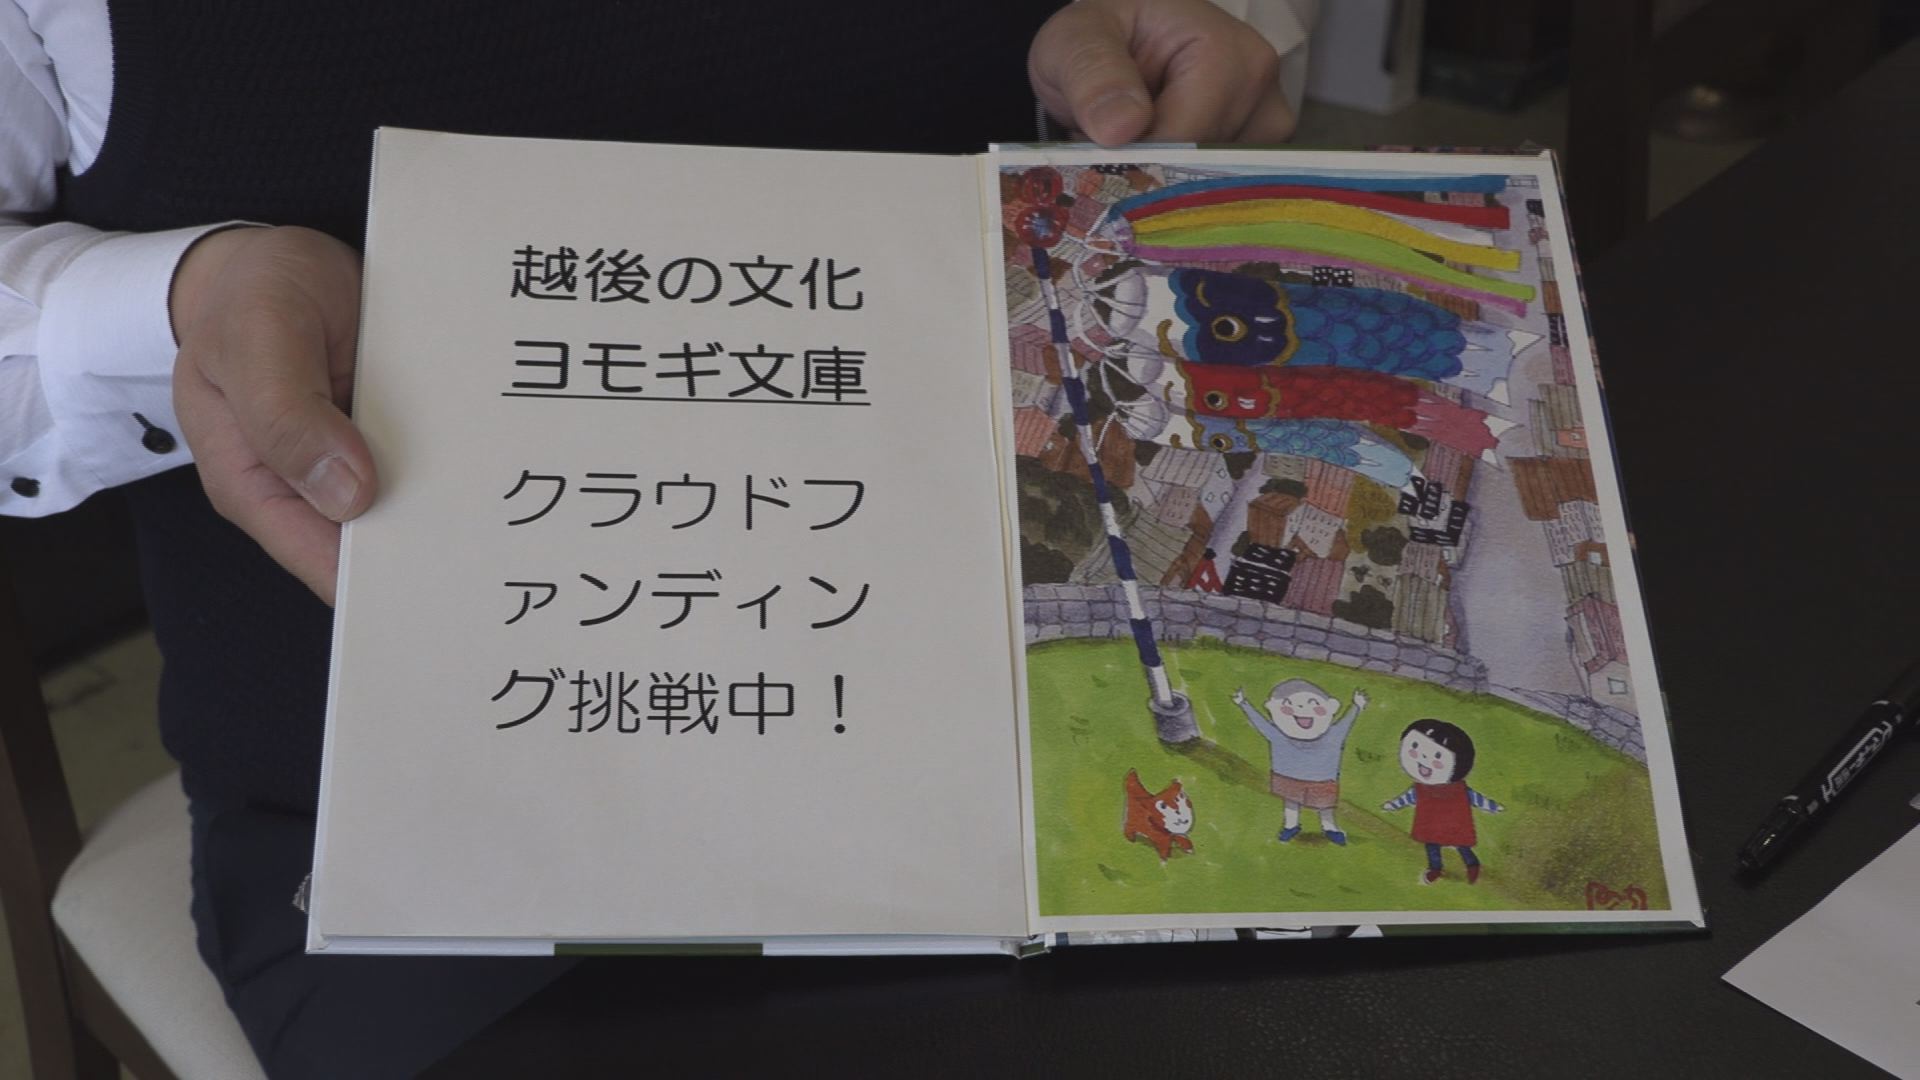 越後の文化
ヨモギ文庫
クラウドフ
ァンディン
グ挑戦中！